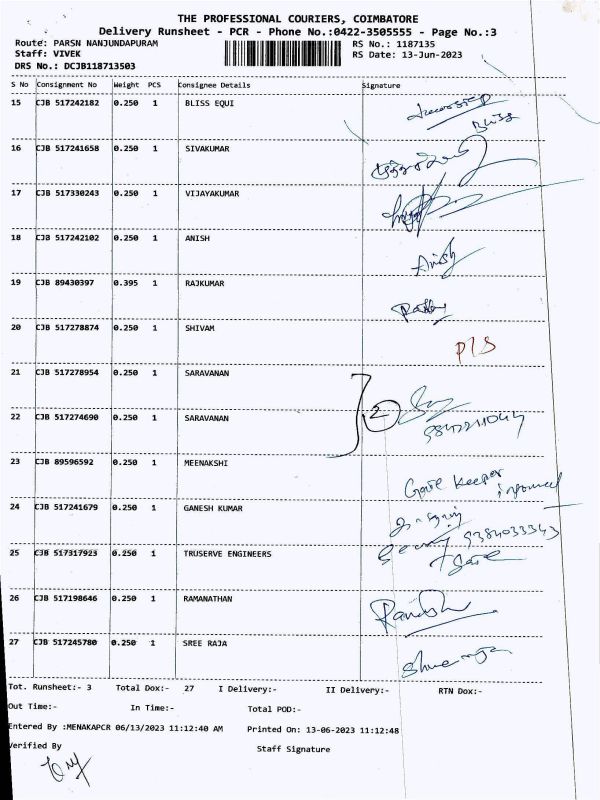 THE PROFESSIONAL COURIERS, COIMBATORE
Delivery Runsheet - PCR - Phone No.:0422-3505555 - Page No.:3
Route: PARSN NANJUNDAPURAM RS No.: 1187135
Staff: VIVEK RS Date: 13-Jun-2023
DRS No.: DCJB118713503
S No Consignment No Weight PCS Consignee Details Signature
15 CJB 517242182 0.250 1 BLISS EQUI
16 CJB 517241658 0.250 1 SIVAKUMAR
17 CJB 517330243 0.250 1 VIJAYAKUMAR
18 CJB 517242102 0.250 1 ANISH Anish
19 CJB 89430397 0.395 1 RAJKUMAR
20 CJB 517278874 0.250 1 SHIVAM P/S
21 CJB 517278954 0.250 1 SARAVANAN
2
22 CJB 517274690 0.250 1 SARAVANAN
23 CJB 89596592 0.250 1 MEENAKSHI Gate Keeper informed
24 CJB 517241679 0.250 1 GANESH KUMAR
9384033343
25 CJB 517317923 0.250 1 TRUSERVE ENGINEERS
26 CJB 517198646 0.250 1 RAMANATHAN
27 CJB 517245780 0.250 1 SREE RAJA
Tot. Runsheet:- 3 Total Dox:- 27 I Delivery:- II Delivery:- RTN Dox:-
Out Time:- In Time:- Total POD:-
Entered By :MENAKAPCR 06/13/2023 11:12:40 AM Printed On: 13-06-2023 11:12:48
Verified By Staff Signature